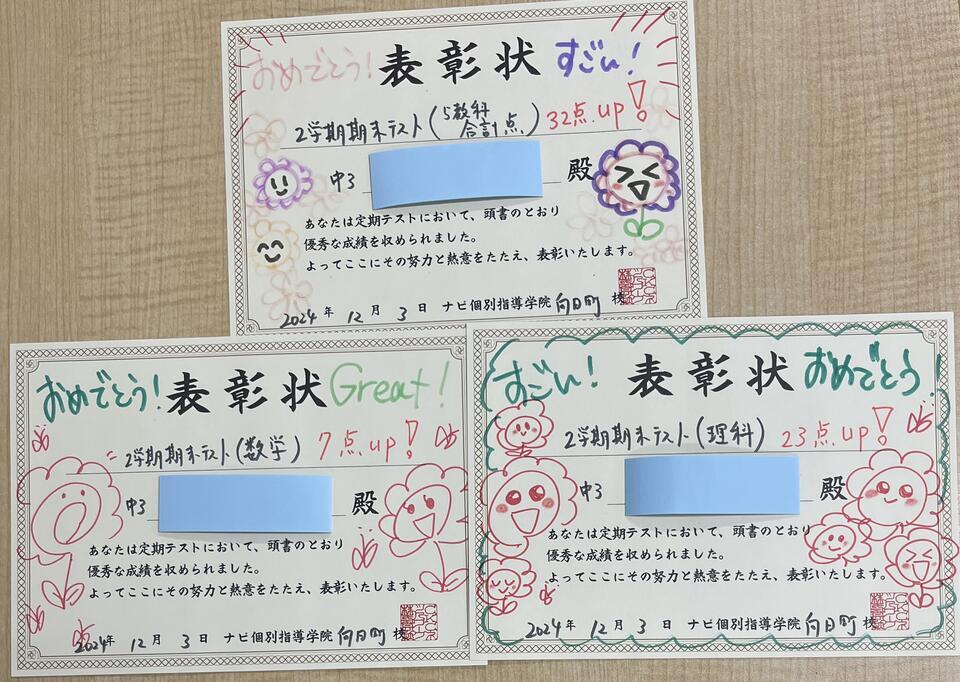 おめでとう! 表彰状 すごい!
2学期期末テスト(5教科合計点) 32点up!
中3 殿
あなたは定期テストにおいて、頭書のとおり
優秀な成績を収められました。
よってここにその努力と熱意をたたえ、表彰いたします。
2024年 12月 3日 ナビ個別指導学院 向日町 校
おめでとう! 表彰状 Great!
2学期期末テスト(数学) 7点up!
中3 殿
あなたは定期テストにおいて、頭書のとおり
優秀な成績を収められました。
よってここにその努力と熱意をたたえ、表彰いたします。
2024年 12月 3日 ナビ個別指導学院 向日町 校
すごい! 表彰状 おめでとう
2学期期末テスト(理科) 23点up!
中3 殿
あなたは定期テストにおいて、頭書のとおり
優秀な成績を収められました。
よってここにその努力と熱意をたたえ、表彰いたします。
2024年 12月 3日 ナビ個別指導学院 向日町 校